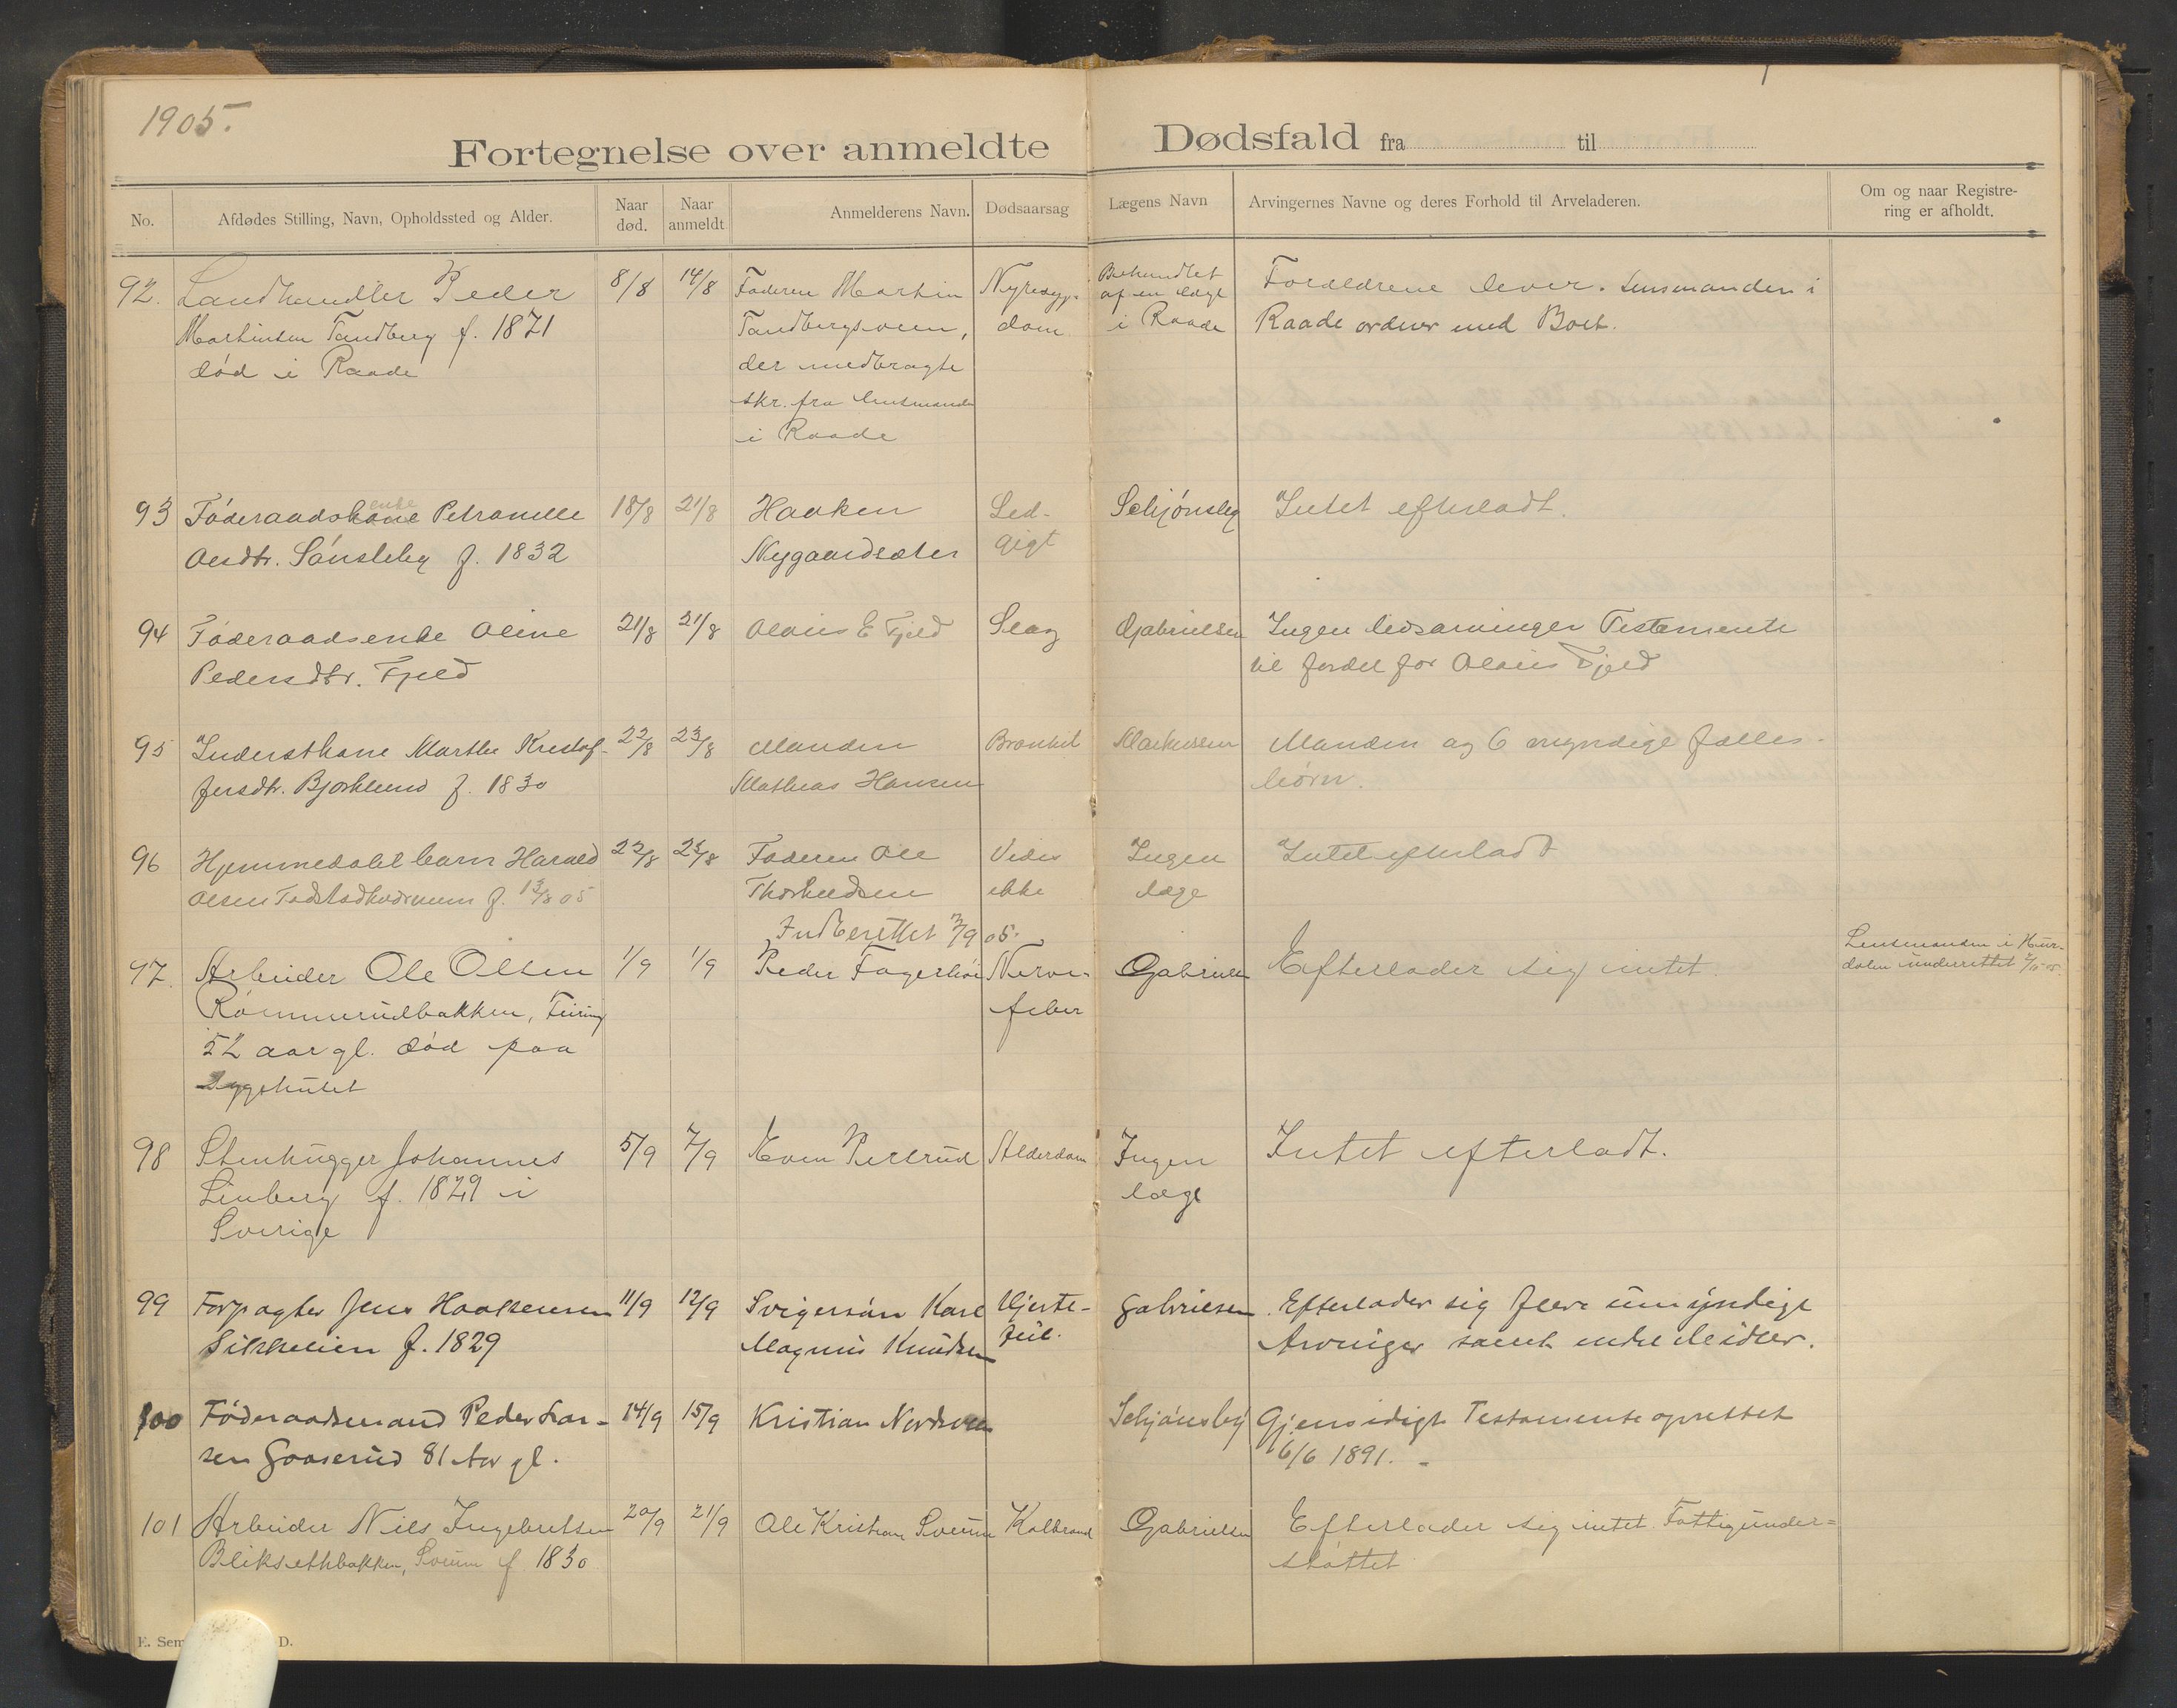 1905.
Fortegnelse over anmeldte Dødsfald fra til
No.
Afdødes Stilling, Navn, Opholdssted og Alder.
Naar død.
Naar anmeldt
Anmelderens Navn.
Dødsaarsag
Lægens Navn
Arvingernes Navne og deres Forhold til Arveladeren.
Om og naar Registre-
ring er afholdt.
92. Landhandler Peder 8/8 14/8 Faderen Martin Nyresyg- Behandlet Forældrene lever. Lensmanden i
Martinsen Tandberg f. 1871 Tandbergsveen, dom af en læge Raade ordner med Boet.
død i Raade der medbragte i Raade
skr. fra lensmanden
i Raade
93 Føderaadskone enke Petronelle 18/8 21/8 Haaken Led- Schjønsby Intet efterladt.
Olsdtr. Sønsteby f. 1832 Nygaardsæter gigt
94 Føderaadsenke Oline 21/8 21/8 Olaus E Fjeld Slag Gabrielsen Ingen livsarvinger Testamente
Pedersdtr. Fjeld til fordel for Olaus Fjeld
95 Inderstkone Marthe Kristof- 22/8 23/8 Manden Bronkit Markussen Manden og 6 myndige fælles-
fersdtr. Bjørklund f. 1830 Mathias Hansen børn.
96 Hjemmedøbt barn Harald 22/8 23/8 Faderen Ole Vides Ingen Intet efterladt
Olsen f. 13/8 05 ikke læge
Indberettet 2/9 05.
97. Arbeider Ole Olsen 1/9 1/9 Peder Fagerhøi Nerve- Gabrielsen Efterlader sig intet. Lensmanden i Hur-
Rømmerudbakken, Feiring feber dalen underrettet
52 aar gl. død paa
Sygehuset
98 Stenhugger Johannes 5/9 7/9 Even Alderdom Ingen Intet efterladt.
Linberg f. 1829 i læge
Sverige
99 Forpagter Jens Haakensen 11/9 12/9 Svigersøn Karl Hjerte- Gabrielsen. Efterlader sig flere umyndige
f. 1829 Magnus Knudsen feil. Arvinger samt endel Midler.
100 Føderaadsmand Peder Lar- 14/9 15/9 Kristian Nordveen Schjønsby Gjensidigt Testamente oprettet
sen Gaaserud 81 Aar gl. 6/6 1891.
101 Arbeider Niels Ingebretsen 20/9 21/9 Ole Kristian Sveum Kolbrand Gabrielsen Efterlader sig intet. Fattigunder=
Bliksethbakken, Sveum f 1830 støttet
E. Sem
D.